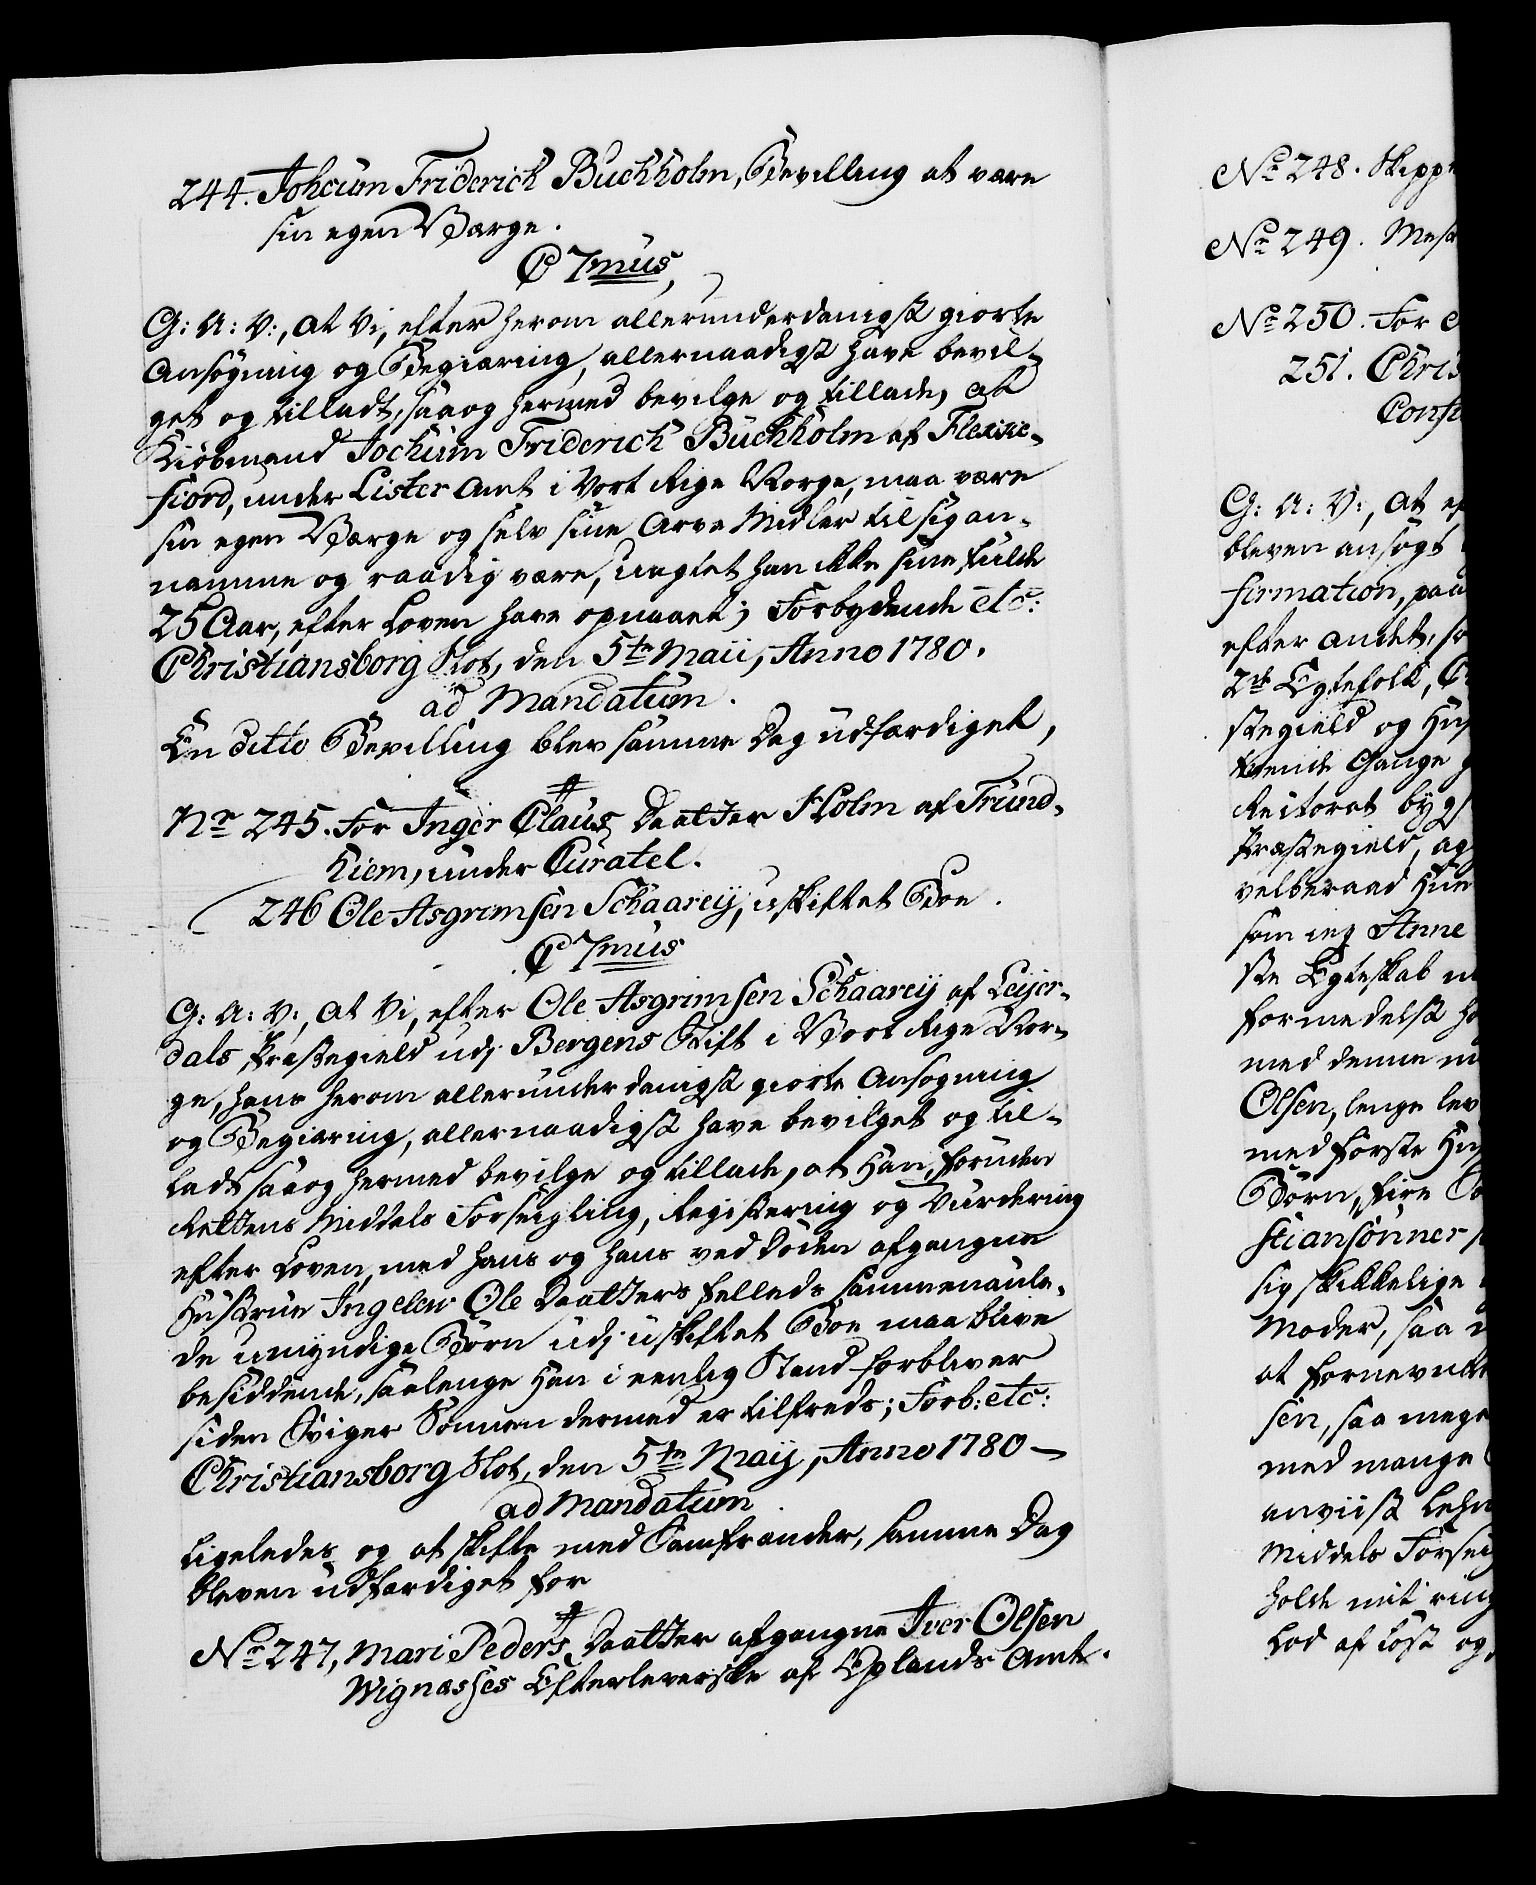 244. Johcūm Friderich Buchholm, Bevilling at være
sin egen Værge.
C 7mus,
G: A: V:, at Vi, efter herom allerunderdanigst giorte
Ansøgning og Begiæring, allernaadigst have bevil-
get og tilladt, saa og hermed bevilge og tillade, at
Kiøbmand Jochūm Friderich Būchholm af Flekke-
fiord, under Lister Amt i Vort Rige Norge, maa være
sin egen Værge og selv sine Arve Midler til sig an-
namme og raadig være, uagtet han ikke sine fulde
25 Aar, efter Loven have opnaaet; Forbydende etc:
Christiansborg Slot, den 5te Maii, Anno 1780.
ad Mandatum.
En ditto Bevilling blev samme Dag udfærdiget,
Nr 245. For Inger Claus Daatter Holm af Trund-
hiem, under Curatel.
246 Ole Asgrimsen Schaareÿ, uskiftet Boe.
C 7mus
G: A: V:, at Vi, efter Ole Asgrimsen Schaareÿ af Leÿer-
dals Præstegield udj Bergens Stift i Vort Rige Nor-
ge, hans herom allerunderdanigst giorte Ansøgning
og Begiæring, allernaadigst have bevilget og til-
ladt saa og hermed bevilge og tillade, at Han, foruden
Rettens Middels Forseigling, Registering og Vurdering
efter Loven, med hans og hans ved Døden afgangne
Hustrue Ingelew Ole Daatters felleds sammenaule-
de umyndige Børn udj uskiftet Boe maa blive
besiddende, saalenge Han i eenlig Stand forbliver
siden Sviger Sønnen dermed er tilfreds; Forb: etc:
Christiansborg Slot, den 5te Maÿ, Anno 1780 –
ad Mandatum.
Ligeledes og at skifte med Samfrænder, samme Dag
bleven udfærdiget for
No 247, Mari Peders Daatter afgangne Iver Olsen
Wignæsses Efterleverske af Oplands Amt.
No 248. Skippe
No 249. Mest
No 250. For
251. Chris
Conf
G: A: V:, at ef
bleven ansøgt
firmation, paa
efter andet, fr
2de Egtefolk, C
stegield og Hus
Gange
Rectorat byg
Præstegield, ag
velberaad Hue
som jeg Anne
ste Egteskab
formedelst ho
med denne
Olsen, lenge lev
med første Hu
Børn, fire
stiansønner
sig skikkelige
Moder, saa
at fornevnte
sen, saa mege
med mange
anviist Lehn
Middels Forsei
holde mit ring
Lod af Løst og